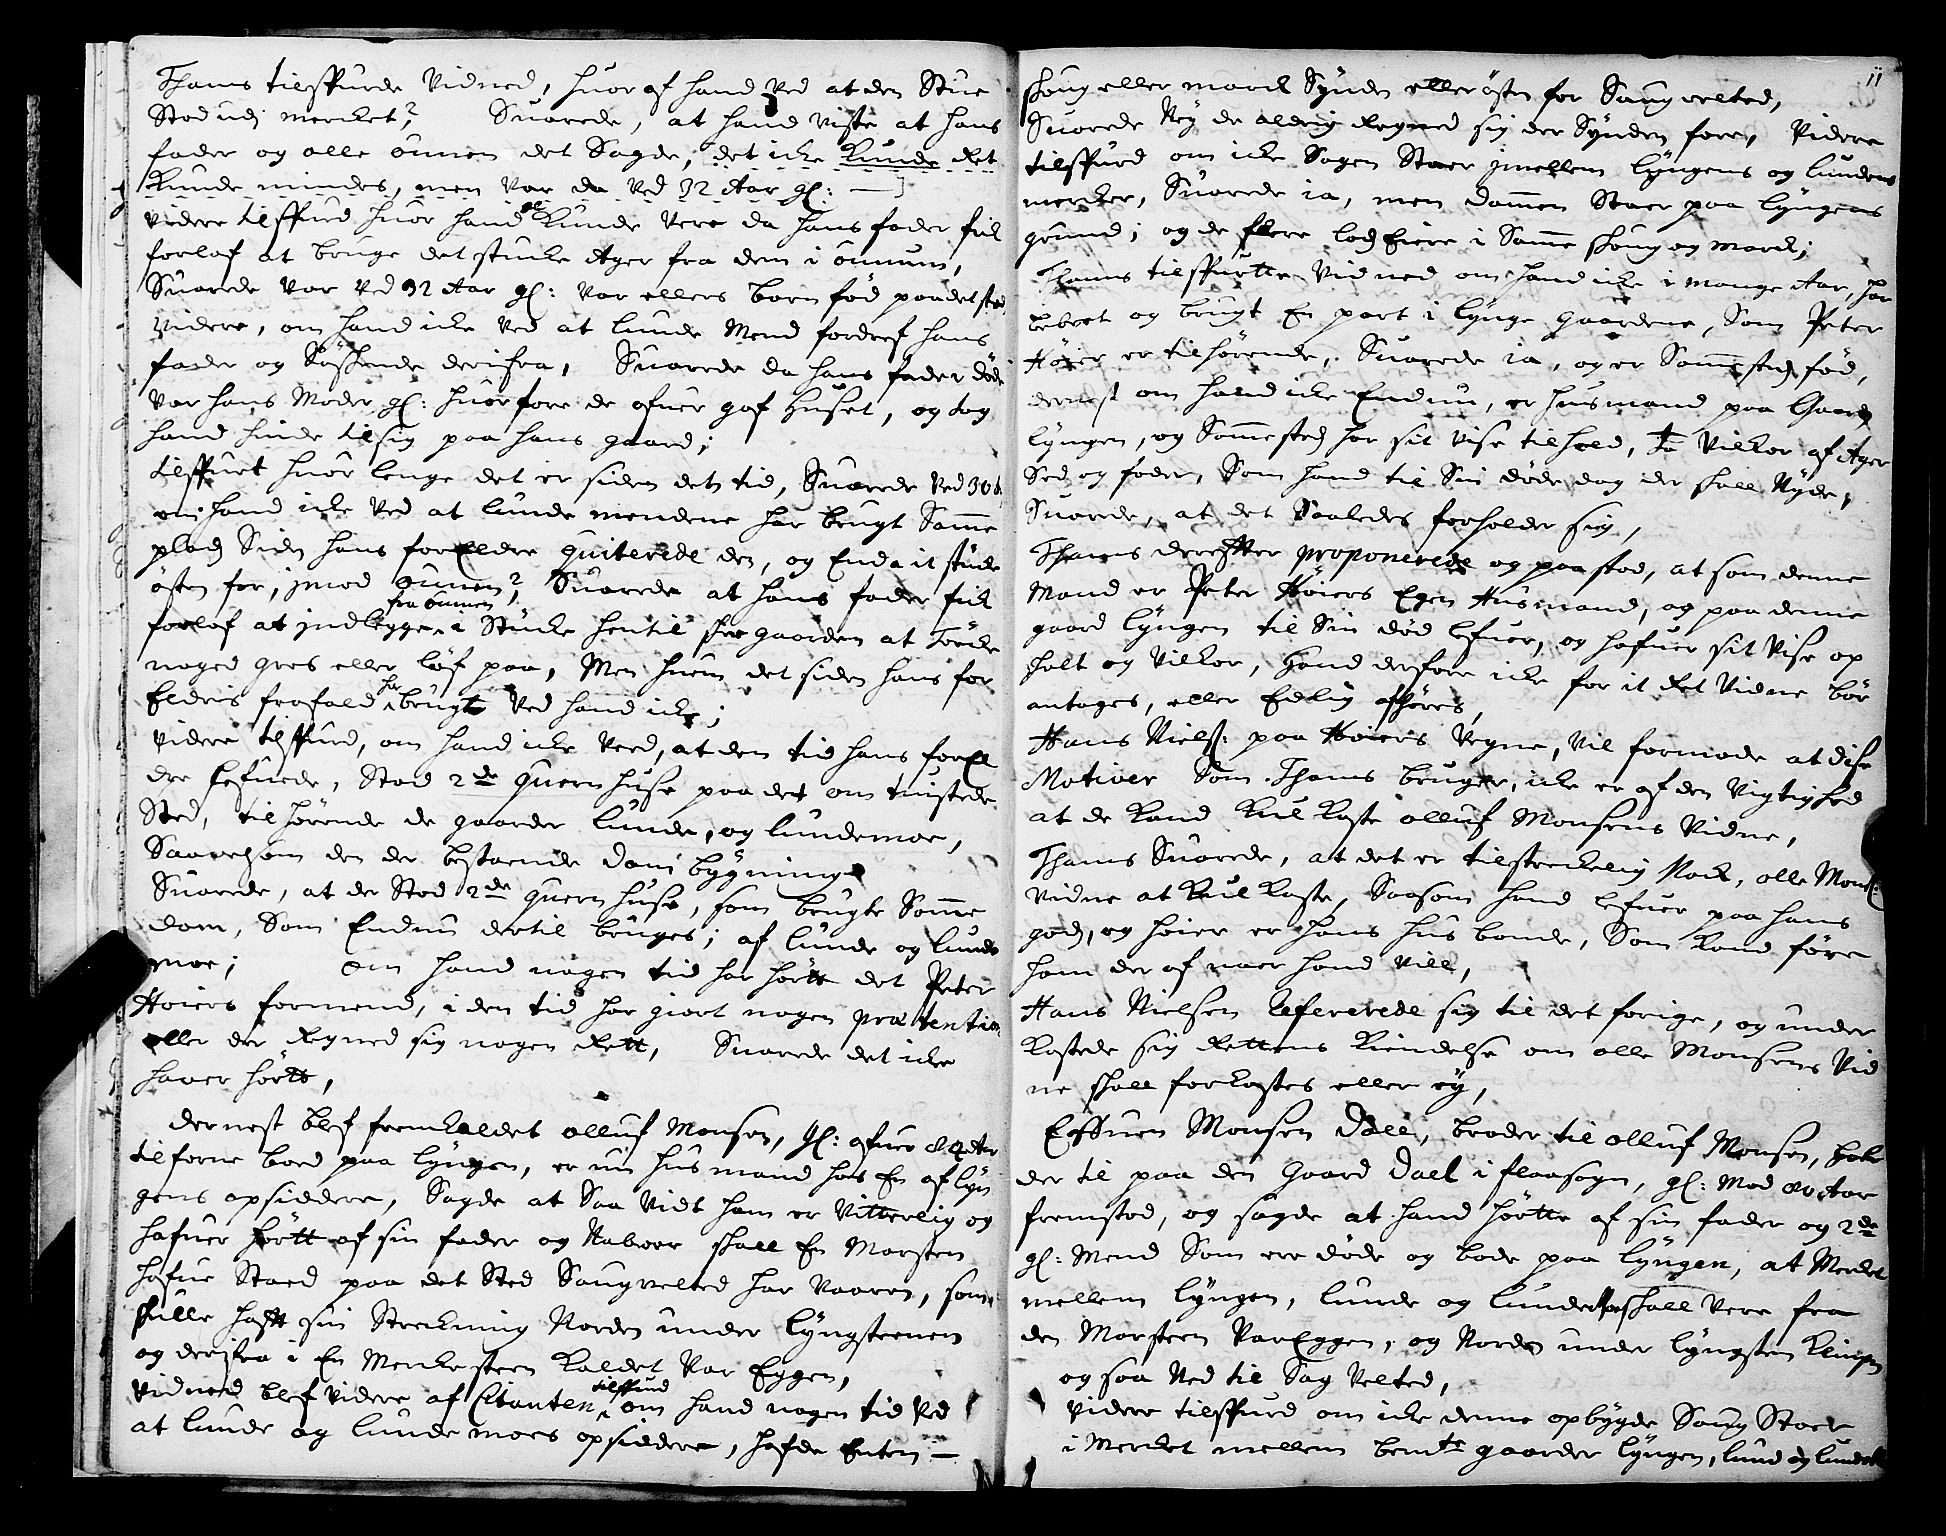 Thams tilspurde Vidned, huor af hand ved at den Stue
Stod udj mercket? Suarede, at hand viste at hans
fader og alle önnen det Sagde, det icke kunde det
kunde mindes, men var da ved 32 Aar gl: —
videre tilspurd huor hand gl kunde vere da hans fader fick
forlof at bruge det stucke Ager fra dem i önnum,
Suarede var ved 32 Aar gl: var ellers barn fød paa det sted
videre, om hand icke ved at lunde Mend fordref hans
fader og Söskende derifra, Suarede da hans fader döde
var hans Moder gl: huorfore de ofuer gaf huset, og tog
hand hinde til sig paa hans gaard;
tilspurt huor lenge det er siden den tid, Suarede ved 30
om hand icke ved at lunde mendene har brugt Samme
plads Siden hans forEldre quiterede den, og End it stücke
östen for, jmod önnen? Suarede at hans fader fick
forlof at jndlegge fra önnen it Stücke hentil gaarden at tørcke
noged gres eller löf paa, Men huem det siden hans for
Eldris frafald har brugt ved hand icke;
videre tilspurd, om hand icke veed, at den tid hans forEl
dre lefuede, Stod 2de quernhuse paa det om tuistede
Sted, tilhörende de gaarder lunde, og lundemoe,
Saavelsom den der bestaaende dam bygning
Suarede, at der Stod 2de quern huse, som brugte Samme
dam, Som Endnu dertil bruges; af lunde og lunde
moe; om hand nogen tid har hörtt det Peter
Høiers formend, i den tid har giort nogen prætention
eller der Regned sig nogen Rett, Suarede det icke
hauer hörtt,
dernest blef fremkaldet olluf Monsen, gl: ofuer 80 Aar
tilforne boed paa lyngen, er nu husmand hos En af lyn
gens opsiddere, Sagde at Saa vidt ham er vitterlig og
hafuer hörtt af sin fader og Naboer skall En Marsteen
hafue Staaed paa det Sted Saugvelted har vaaren, som
skulle hafft sin Streckning Norden under lyngsteenen
og derifra i En Mercke steen kaldet Var Eggen,
Vidned blef videre af Citanten tilspurd om hand nogen tid ved
at lunde og lunde moes opsiddere, hafde Enten —
11
skoug eller marck Synden eller östen for Saugvelted,
Suarede Ney de aldrig Regned sig der Synden fore, videre
tilspurd om icke Sagen Staar jmellem lyngens og lundens
mercker, Suarede ia, men dammen Staar paa lyngens
grund; og de flere lods Eiere i Samme skoug og marck;
Thams tilspurtte vidned om hand icke i mange Aar, har
beboet og brugt En part i lynge gaardene, Som Peter
Høier er tilhørende, Suarede ia, og er Sammesteds fød,
dernest om hand icke Endnu, er husmand paa Gaarden
lyngen, og Sammesteds har sit visse tilhold, vilkor af Ager
Sed og foder, Som hand til Sin döde dag der skall Nyde,
Suarede, at det Saaledes forholder sig,
Thams derefter proponerede og paastod, at som denne
Mand er Peter Høiers Egen Husmand, og paa denne
gaard lyngen til Sin död lefuer, og hafuer sit visse op
holt og vilkor, hand derfore icke for it ret vidne bör
antages, eller Edelig afhøres,
Hans Niels: paa Høiers vegne, vil formode at disse
Motiver Som Thams bruger, icke er af den vigtighed
at de kand kulkaste olluf Monsens vidne,
Thams Suarede, at det er tilstreckelig Nock, olle Mons:
vidne at kulkaste, Saasom hand lefuer paa hans
gods, og høier er hans husbonde, Som kand före
ham der af naar hand vill,
Hans Nielsen Refererede sig til det forige, og under
kastede sig Rettens kiendelse om olle Monsens vid
ne skall forkastes eller ey,
Effuen Monsen Dall, broder til olluf Monsen, hol
der til paa den gaard Dael i flaasogn, gl: Mod 80 Aar
fremstod, og sagde at hand hörtte af sin fader og 2de
gl: Mend Som ere døde og bode paa lyngen, at Mercket
mellem lyngen, lunde og lunde skall vere fra
den Marsteen VarEggen, og Norden under lyngsten
og saa Ned til Sag velted,
videre tilspurd om icke denne opbygde Saug Staar
i Mercket mellem bemte gaarder lyngen, lund og lunde